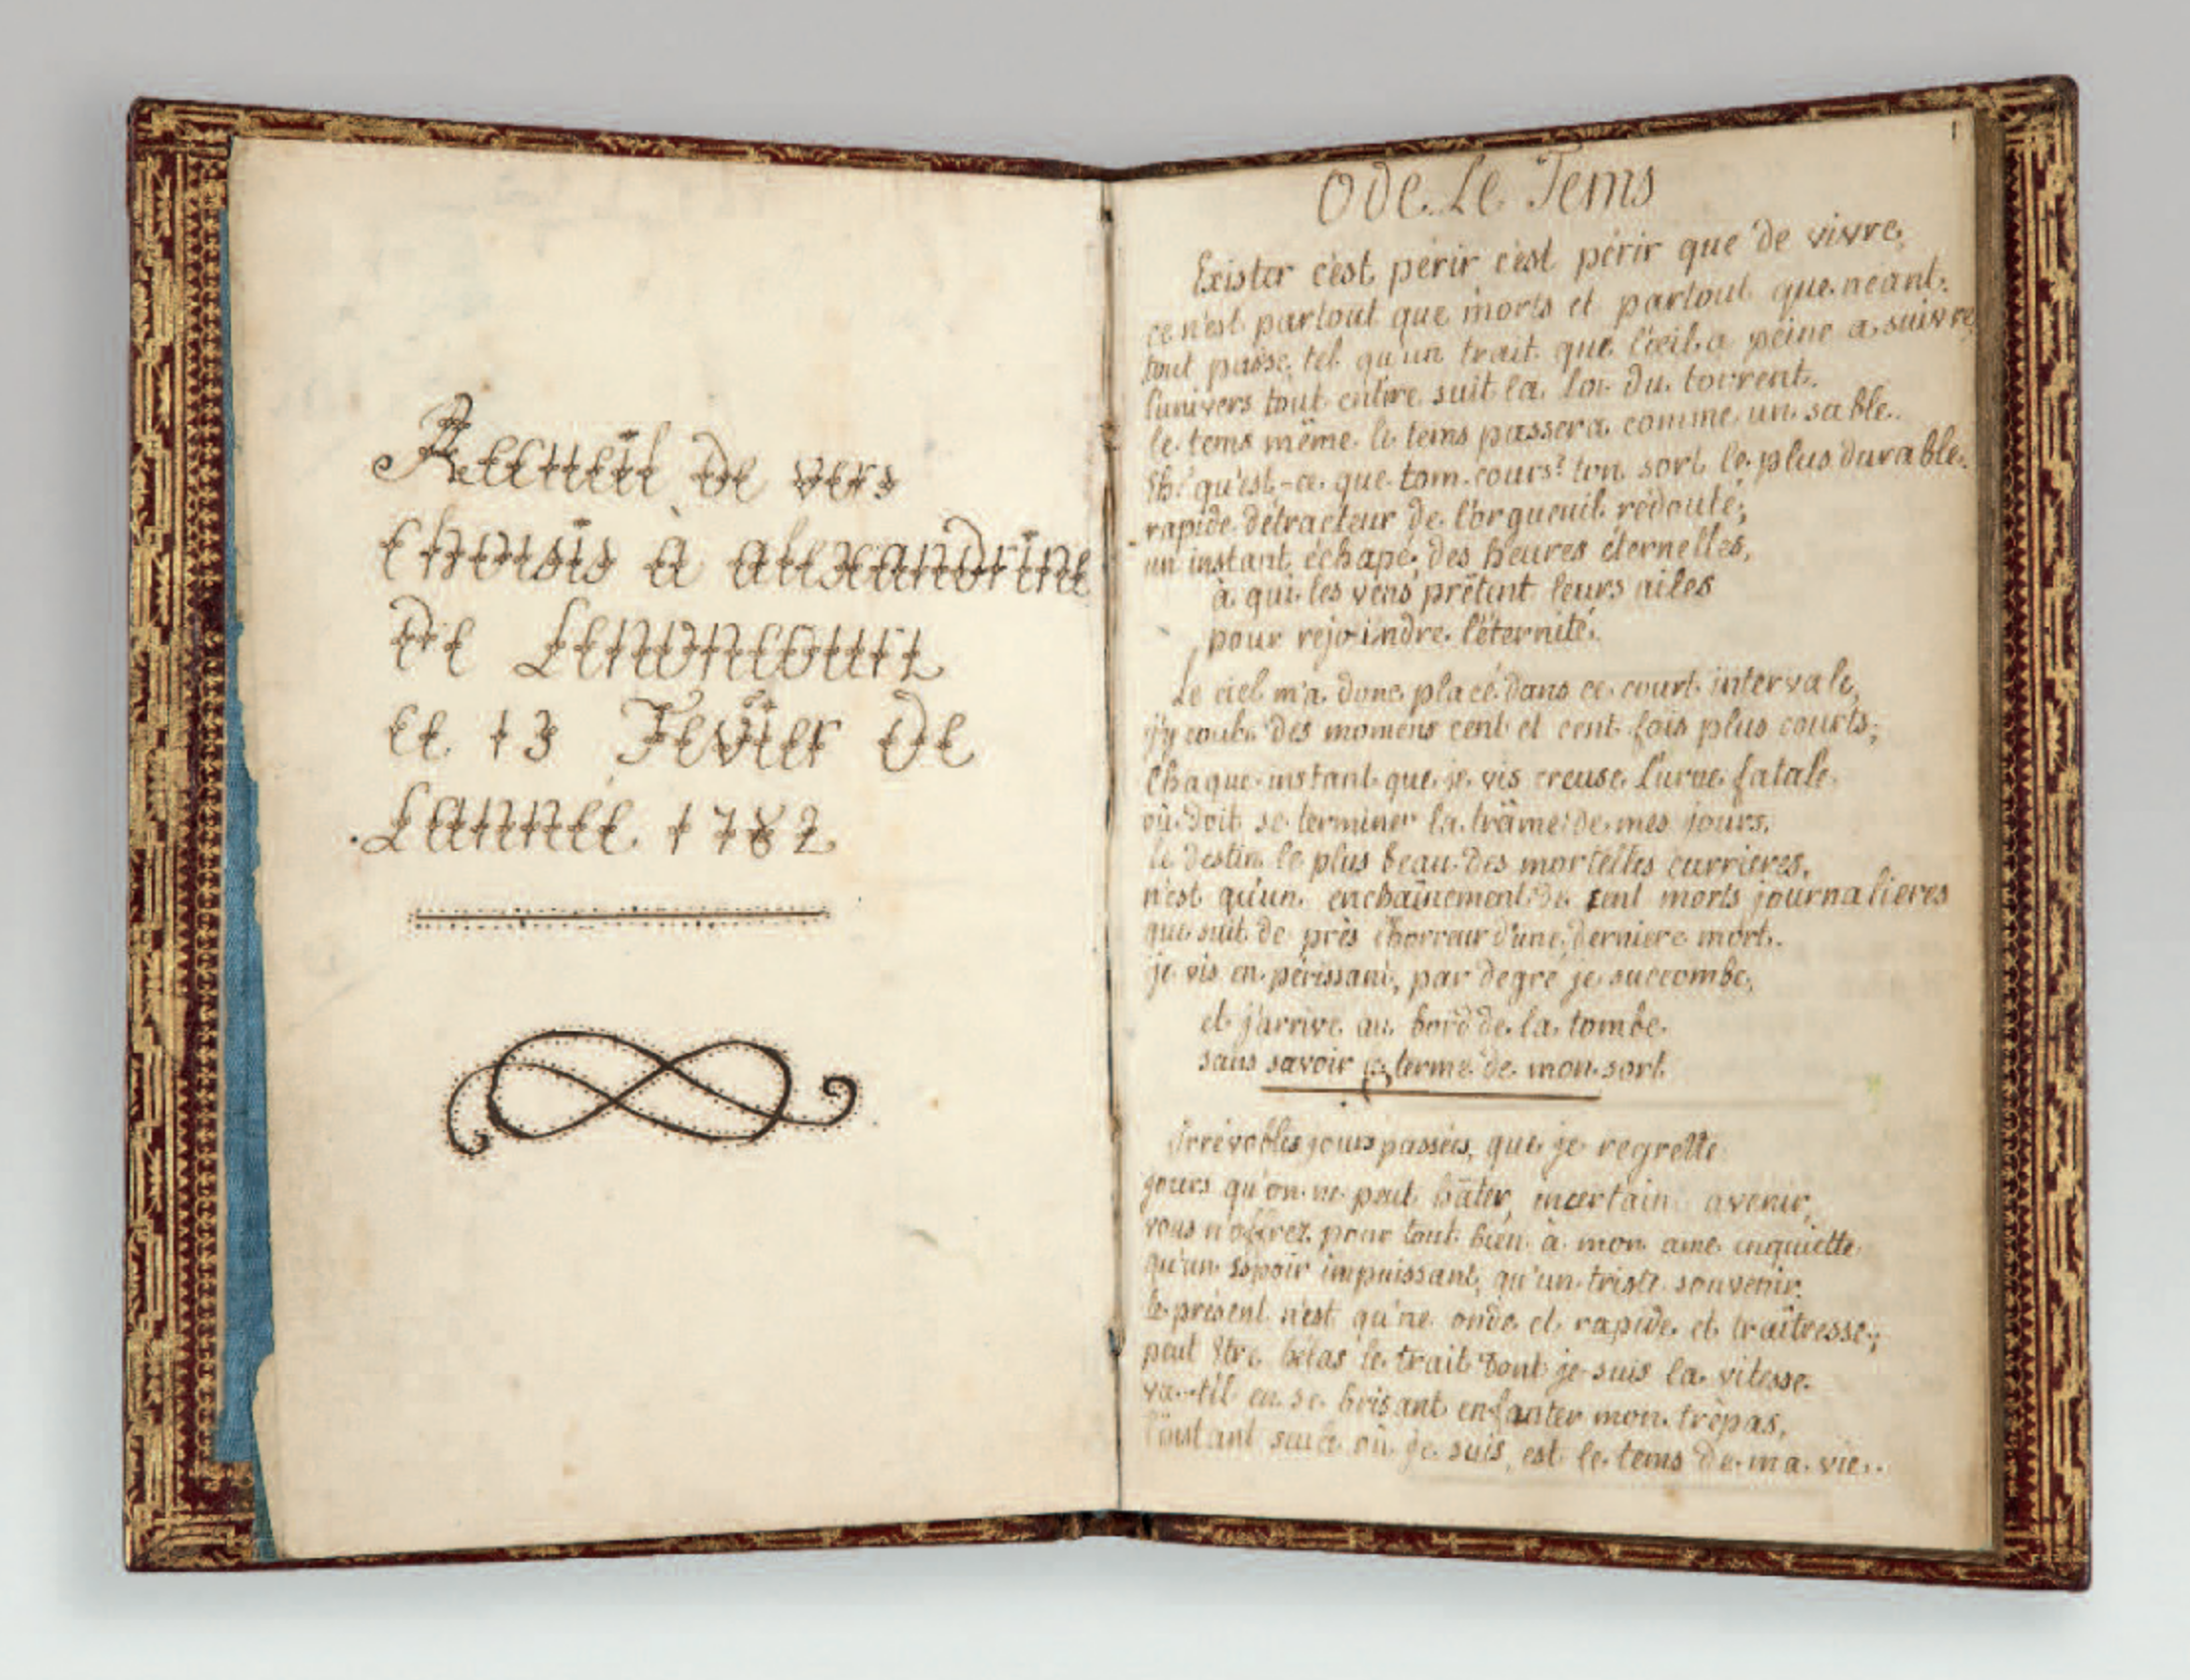 Recueil de vers
Choisis à alexandrine
de Lenoncourt
ce 13 Fevier de
Lannéé 1782
1
Ode Le Tems
Exister c'est périr c'est périr que de vivre,
ce n'est partout que morts et partout que néant.
tout passe, tel qu'un trait que l'œil a peine a suivre,
l'univers tout entire suit la loi du torrent.
le tems même le tems passera comme un sable.
Eh! qu'est-ce que tom cours? ton sort le plus durable.
rapide détracteur de l'orgueuil rédouté;
un instant échapé des heures éternelles,
à qui les vens prêtent leurs ailes
pour rejoindre l'éternité.
Le ciel m'a donc placé dans ce court intervale,
j'y des momens cent et cent fois plus courts;
Chaque instant que je vis creuse l'urne fatale
où doit se terminer la trâme de mes jours.
le destin le plus beau des mortelles carrieres,
n'est qu'un enchaînement de morts journalieres
que suit de près l'horreur d'une derniere mort.
je vis en périssant, par degré je succombe,
et j'arrive au bord de la tombe
sans savoir le terme de mon sort
jours passées, que je regrette
jours qu'on ne peut hâter, incertain avenir,
vous n'offrez pour tout bien à mon ame inquiette
qu'un espoir impuissant, qu'un triste souvenir.
le présent n'est qu'ne onde et rapide et traîtresse;
peut être hélas le trait dont je suis la vitesse
va-t-il en se brisant enfanter mon trépas,
l'instant seul où je suis, est le tems de ma vie.